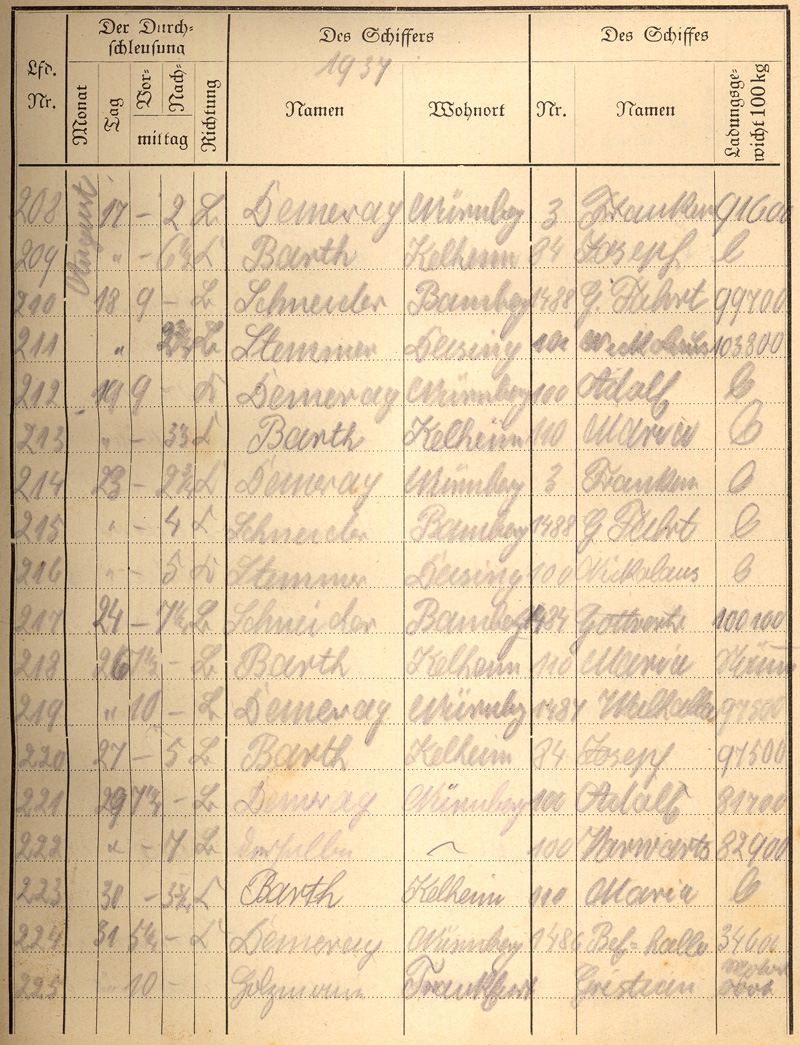 Lfd. Nr.
Der Durchschleusung
Monat
Tag
Vor-
Nach-
mittag
Richtung
Des Schiffers
1937
Namen
Wohnort
Des Schiffes
Nr.
Namen
Ladungsgewicht 100 kg
208 August 17 – 2 L Demeray Nürnberg 3 Franken 91600
209 " – Barth Kelheim 84 Josepf
210 18 9 – L Schneider Bamberg 1488 G. Fahrt 99700
211 " L Stemmer Deising 100 103800
212 19 9 Demeray Nürnberg 100 Adolf
213 " – Barth Kelheim 110 Maria
214 23 – Demeray Nürnberg 3 Franken
215 " – 4 Schneider Bamberg 1488 G Fahrt
216 " – 5 Stemmer Deising 100 Nickolaus
217 24 – L Schneider Bamberg 100100
218 26 – L Barth Kelheim 110 Maria
219 " 10 – L Demeray Nürnbg 1487 97500
220 27 – 5 L Barth Kelheim 84 Josepf 97500
221 29 – L Demeray Nürnberg 100 Adolf 81700
222 " – 7 L derselbe 100 Vorwarts 82900
223 30 – Barth Kelheim 110 Maria
224 31 – Demeray Nürnberg 1486 Bef=halle 34600
225 10 – Holzmann Frankfurt